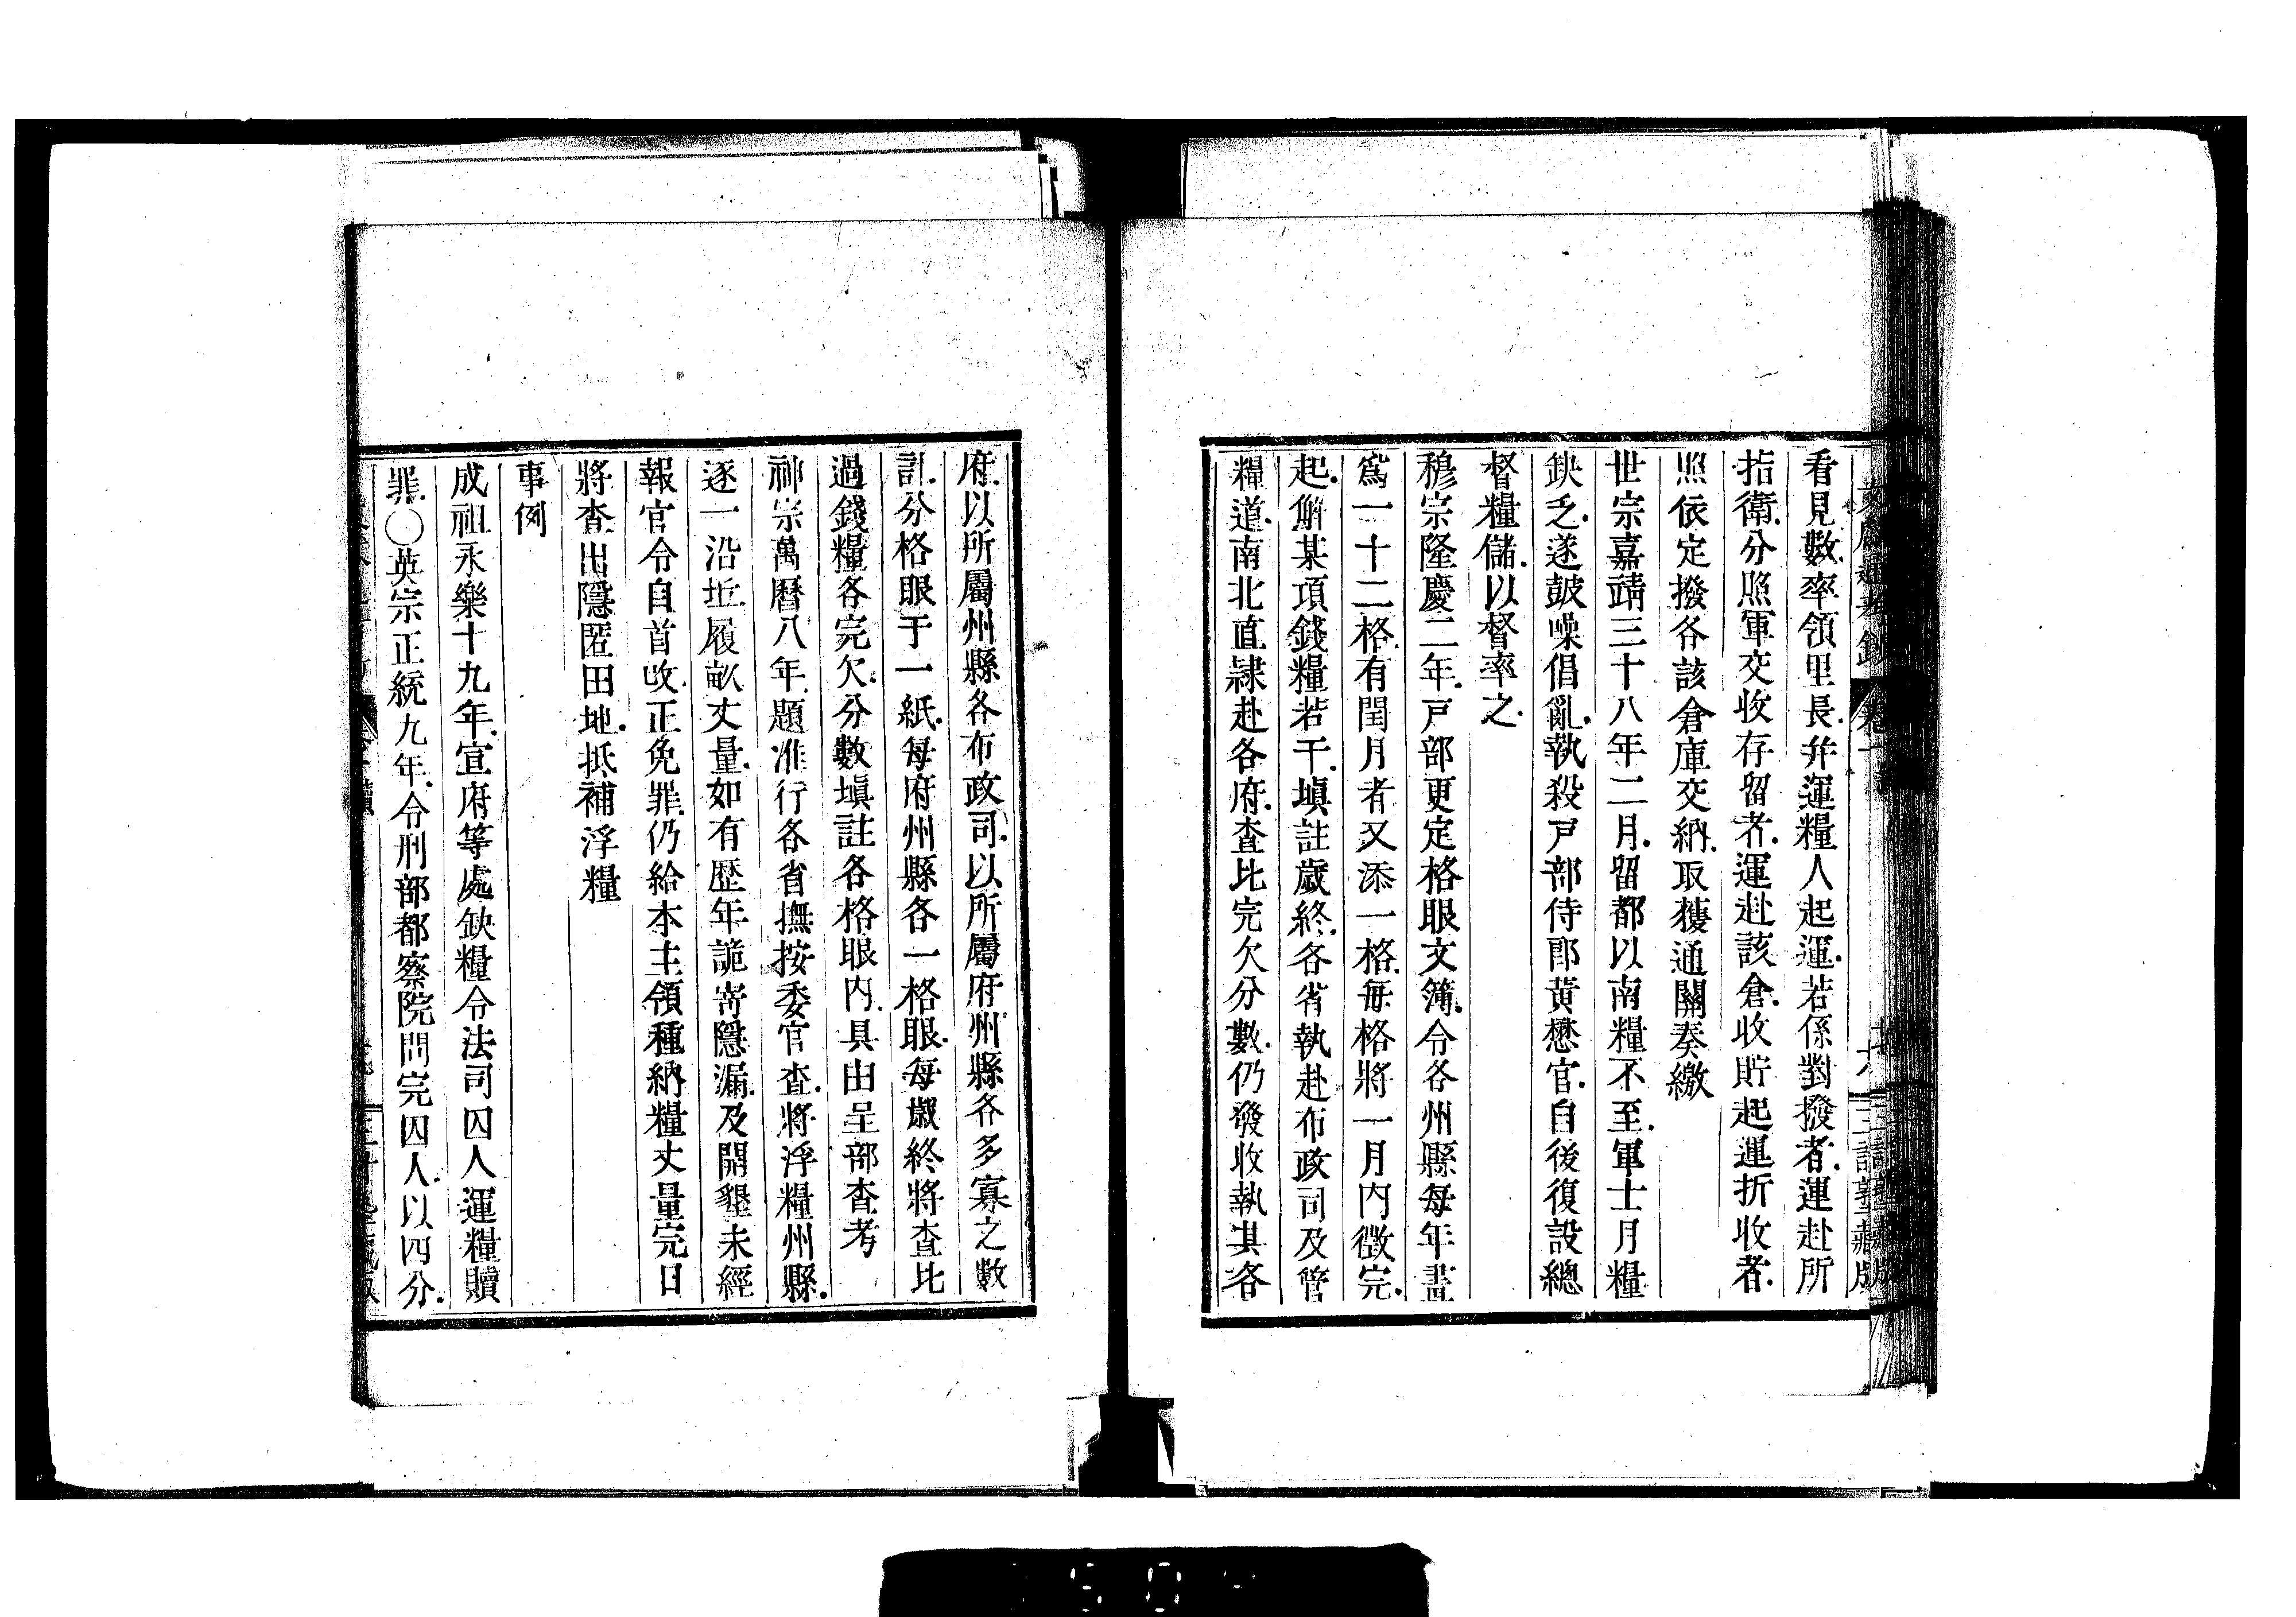 看見數率領里長幷運糧人起運若係對撥者運赴所
指衛分照軍交收存留者運赴該倉收貯起運折收者
照依定撥各該倉庫交納取獲通關奏繳
世宗嘉靖三十八年二月留都以南糧不至軍士月糧
缺乏遂鼓噪倡亂執殺戸部侍郎黃懋官自後復設總
督糧儲以督率之
穆宗隆慶二年戸部更定格眼文簿令各州縣每年畫
爲一十二格有閏月者又添一格每格將一月內徵完
起解某項錢糧若干塡註歲終各省執赴布政司及管
糧道南北直隷赴各府查比完欠分數仍發收執其各
府以所屬州縣各布政司以所屬府州縣各多寡之數
計分格眼于一紙每府州縣各一格眼每歲終將查比
過錢糧各完欠分數塡註各格眼內具由呈部查考
神宗萬曆八年題准行各省撫按委官查將浮糧州縣
逐一沿坵履畝丈量如有歷年詭寄隱漏及開墾未經
報官令自首改正免罪仍給本主領種納糧丈量完日
將查出隱匿田地抵補浮糧
事例
成祖永樂十九年宣府等處缺糧令法司囚人運糧贖
罪○英宗正統九年令刑部都察院問完囚人以四分